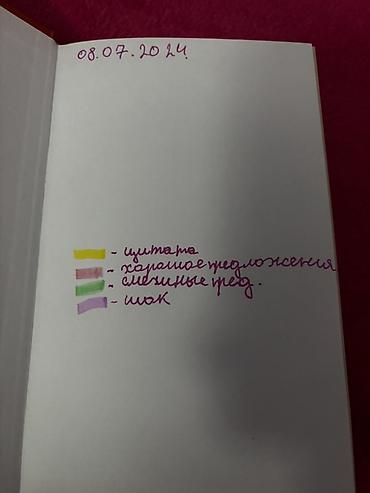 08.07.2024.
- цитата
- хорошое предложения
- смешные пред.
- шок